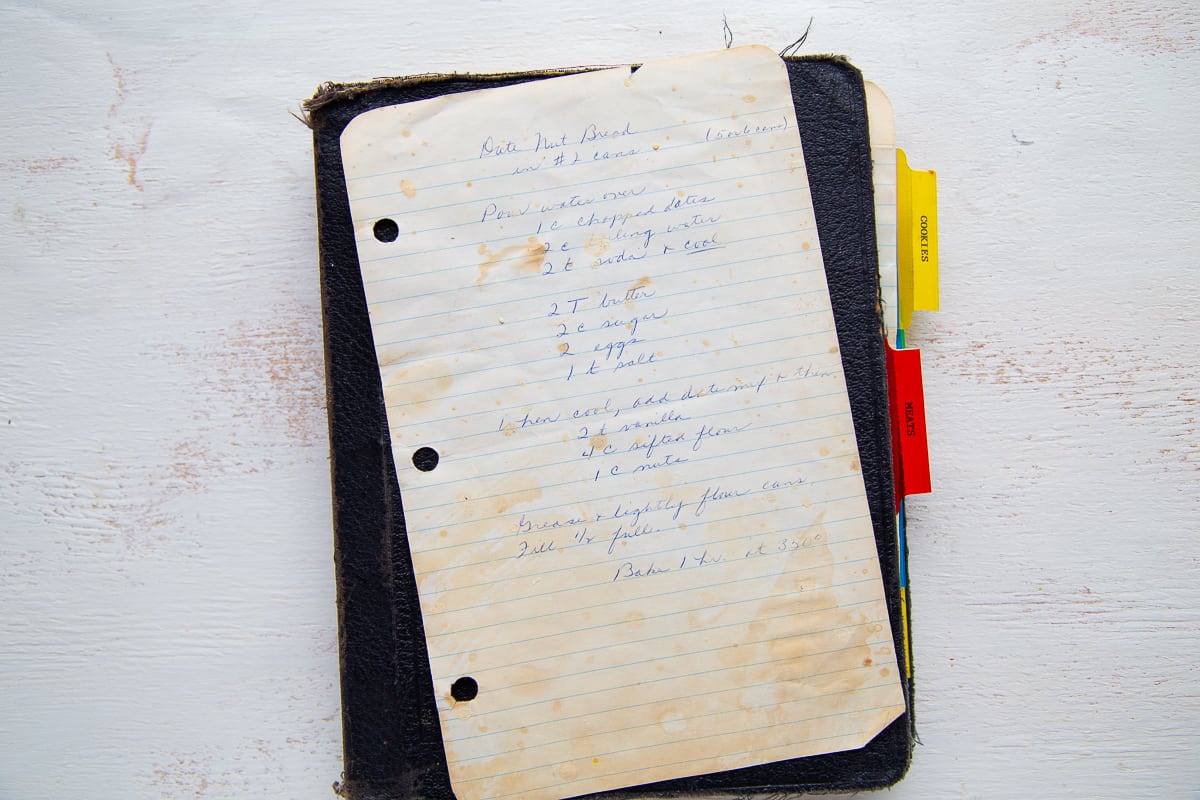 Date Nut Bread
in #2 cans (5 or 6 cans)
Pour water over
1 c chopped dates
2 c boiling water
2 t soda + cool
2 T butter
2 c sugar
2 eggs
1 t salt
When cool, add date mix + then
2 t vanilla
4 c sifted flour
1 c nuts
Grease + lightly flour cans.
Fill 1/2 full.
Bake 1 hr. at 350°
COOKIES
MEATS